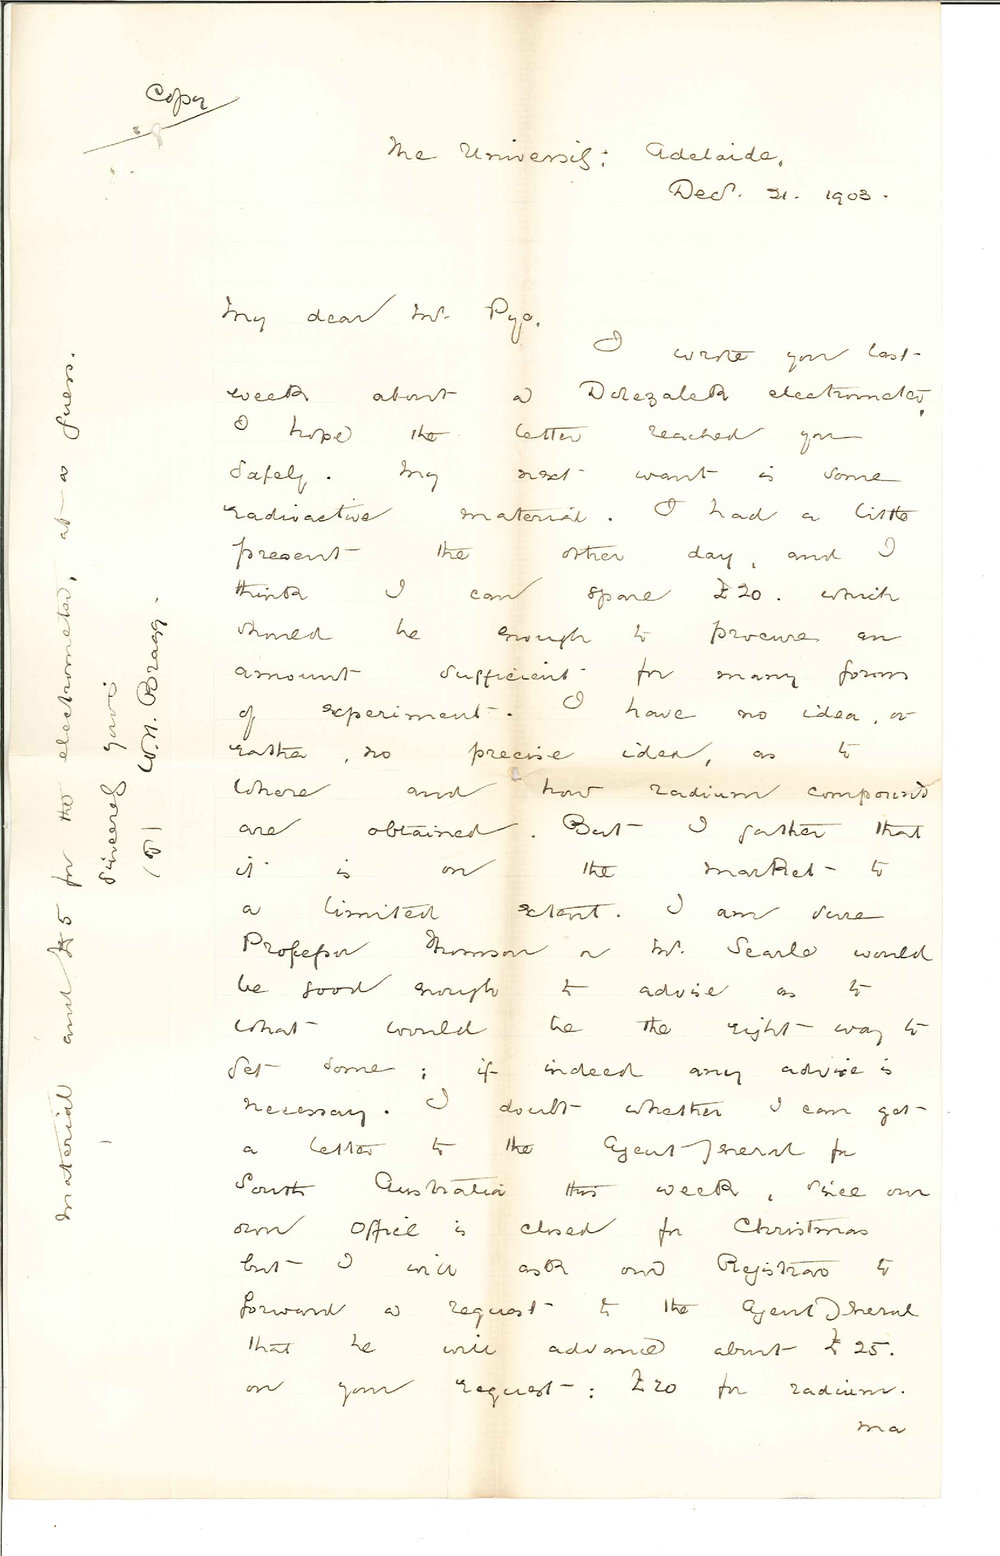 Copy
The University: Adelaide.
Dec. 21. 1903.
My dear Mr. Pye,
I wrote you last
week about a Dolezalek electrometer,
I hope the letter reached you
safely. My next want is some
radioactive material. I had a little
present the other day, and I
think I can spare £20. which
should be enough to procure an
amount sufficient for many forms
of experiment. I have no idea, or
rather, no precise idea, as to
where and how radium compounds
are obtained. But I gather that
it is on the market to
a limited extent. I am sure
Professor Thomson or Mr. Searle would
be good enough to advise as to
what would be the right way to
get some; if indeed any advice is
necessary. I doubt whether I can get
a letter to the Agent General for
South Australia this week, since our
own office is closed for Christmas
but I will ask our Registrar to
forward a request to the Agent General
that he will advance about £25.
on your request: £20 for radium.
ma
material and £5 for the electrometer, at a guess.
Sincerely yours
W.H. Bragg.